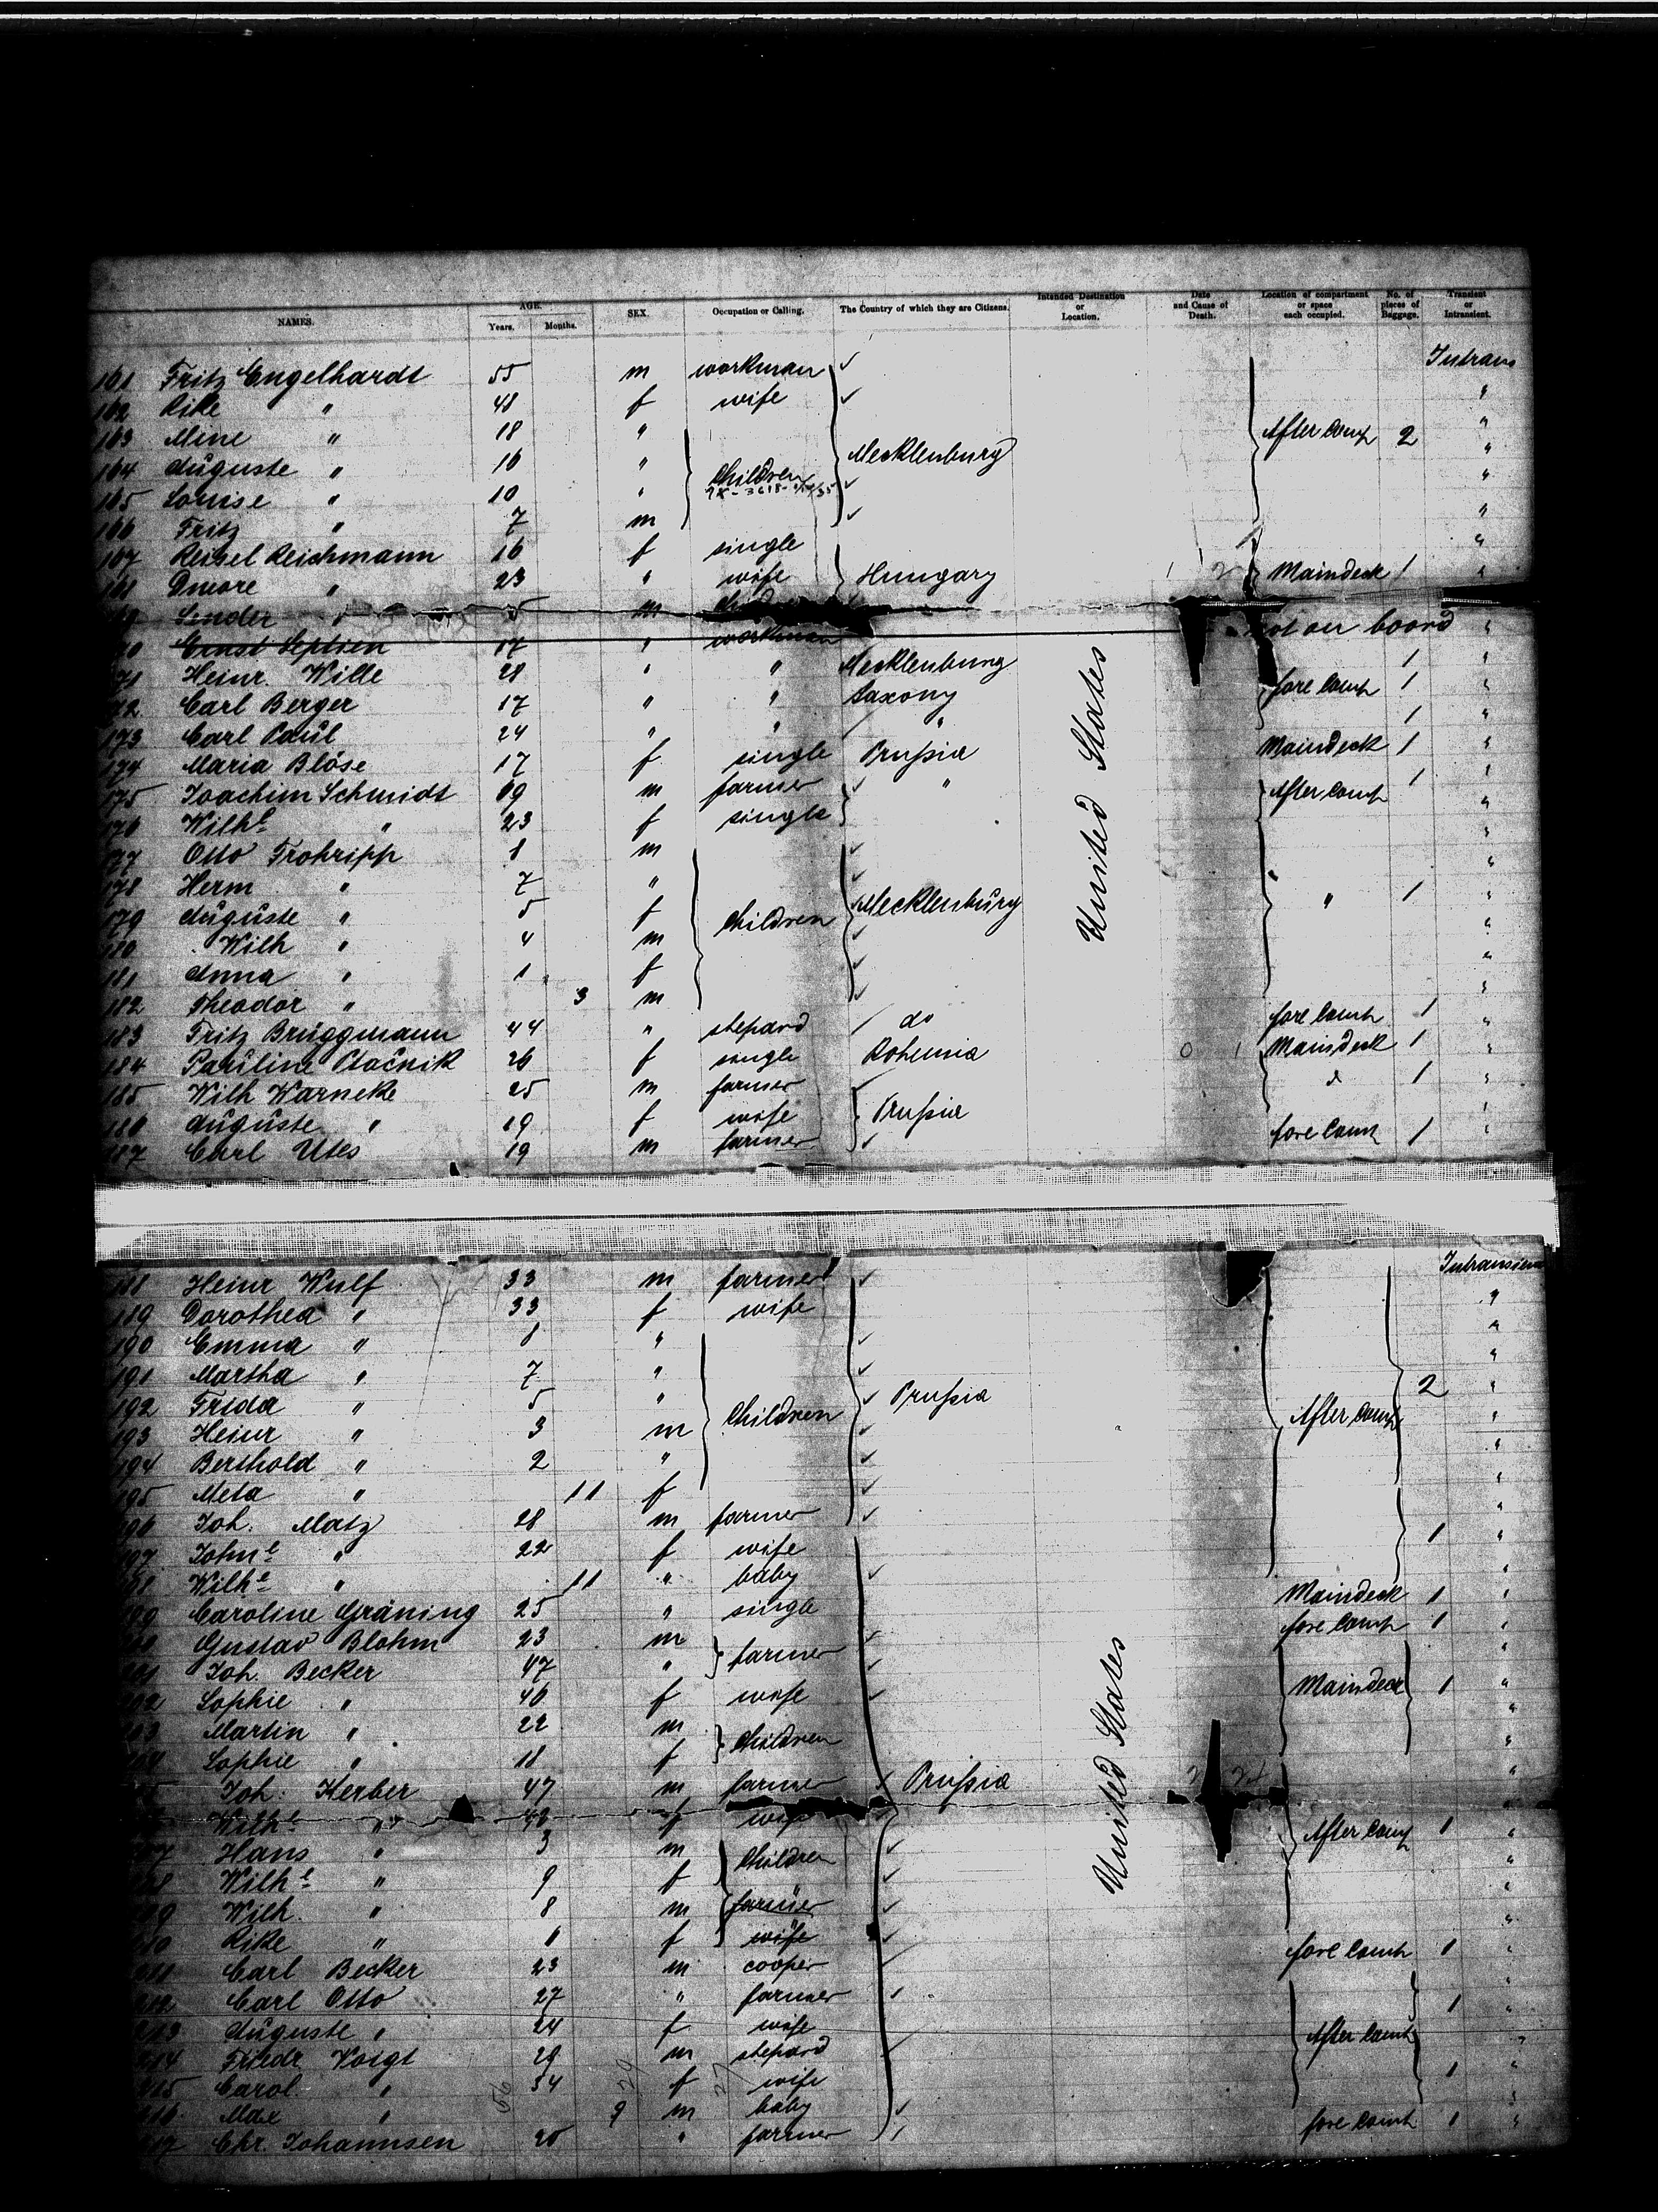 NAMES. AGE. Years. Months. SEX. Occupation or Calling. The Country of which they are Citizens. Intended Destination or Location. Date and Cause of Death. Location of compartment or space each occupied. No. of pieces of Baggage. Transient or Intransient.
161 Fritz Engelhardt 55 m workman Intrans
162 Rike " 48 f wife "
163 Mine " 18 " After comp 2 "
164 Auguste " 16 " Children Mecklenburg "
165 Louise " 10 " "
166 Fritz " 7 m "
167 Reisel Reichmann 16 f single "
168 Dwore " 23 " wife Hungary Maindeck 1 "
169 Sender " m
170 Ernst Septien 17 " workman not on board "
171 Heinr. Wille 28 " " Mecklenburg 1 "
172 Carl Berger 17 " " Saxony fore comp 1 "
173 Carl Paul 24 " " " 1 "
174 Maria Blöse 17 f single Prussia Maindeck 1 "
175 Joachim Schmidt 69 m farmer " After comp 1 "
176 Wilhe " 23 f single "
177 Otto Frohripp 8 m "
178 Herm " 7 " "
179 Auguste " 5 f Children Mecklenburg " 1 "
180 Wilh " 4 m "
181 Anna " 1 f "
182 Theodor " 3 m "
183 Fritz Brüggmann 44 " shepard do fore comp 1 "
184 Pauline Ptačnik 26 f single Bohemia Maindeck 1 "
185 Wilh Warneke 25 m farmer 1 "
186 Auguste " 19 f wife Prussia "
187 Carl Utes 19 m farmer fore comp 1 "
United States
188 Heinr Wulf 33 m farmer Intransient
189 Dorothea " 33 f wife "
190 Emma " 8 " "
191 Martha " 7 " "
192 Frida " 5 " Children Prussia After comp 2 "
193 Heinr " 3 m "
194 Berthold " 2 " "
195 Meta " 11 f "
196 Joh. Matz 28 m farmer "
197 Johne " 22 f wife 1 "
198 Wilhe " 11 " baby "
199 Caroline Gräning 25 " single Maindeck 1 "
200 Gustav Blohm 23 m farmer fore comp 1 "
201 Joh. Becker 47 " "
202 Sophie " 46 f wife Maindeck 1 "
203 Martin " 22 m Children "
204 Sophie " 18 f "
205 Joh. Kerber 47 m farmer Prussia "
206 Wilhe " f wife "
207 Hans " 3 m Children After comp 1 "
208 Wilhe " 9 f "
209 Wilh. " 8 m farmer "
210 Rike " f wife "
211 Carl Becker 23 m cooper fore comp 1 "
212 Carl Otto 27 " farmer 1 "
213 Auguste " 24 f wife After comp "
214 Friedr Voigt 29 m shepard "
215 Carol " 34 f wife 1 "
216 Max " 9 m baby "
217 Chr. Johannsen 20 " farmer fore comp 1 "
United States